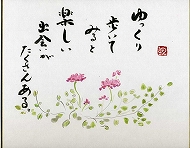 ゆっくり
歩いて
みると
楽しい
出会いが
たくさんある。